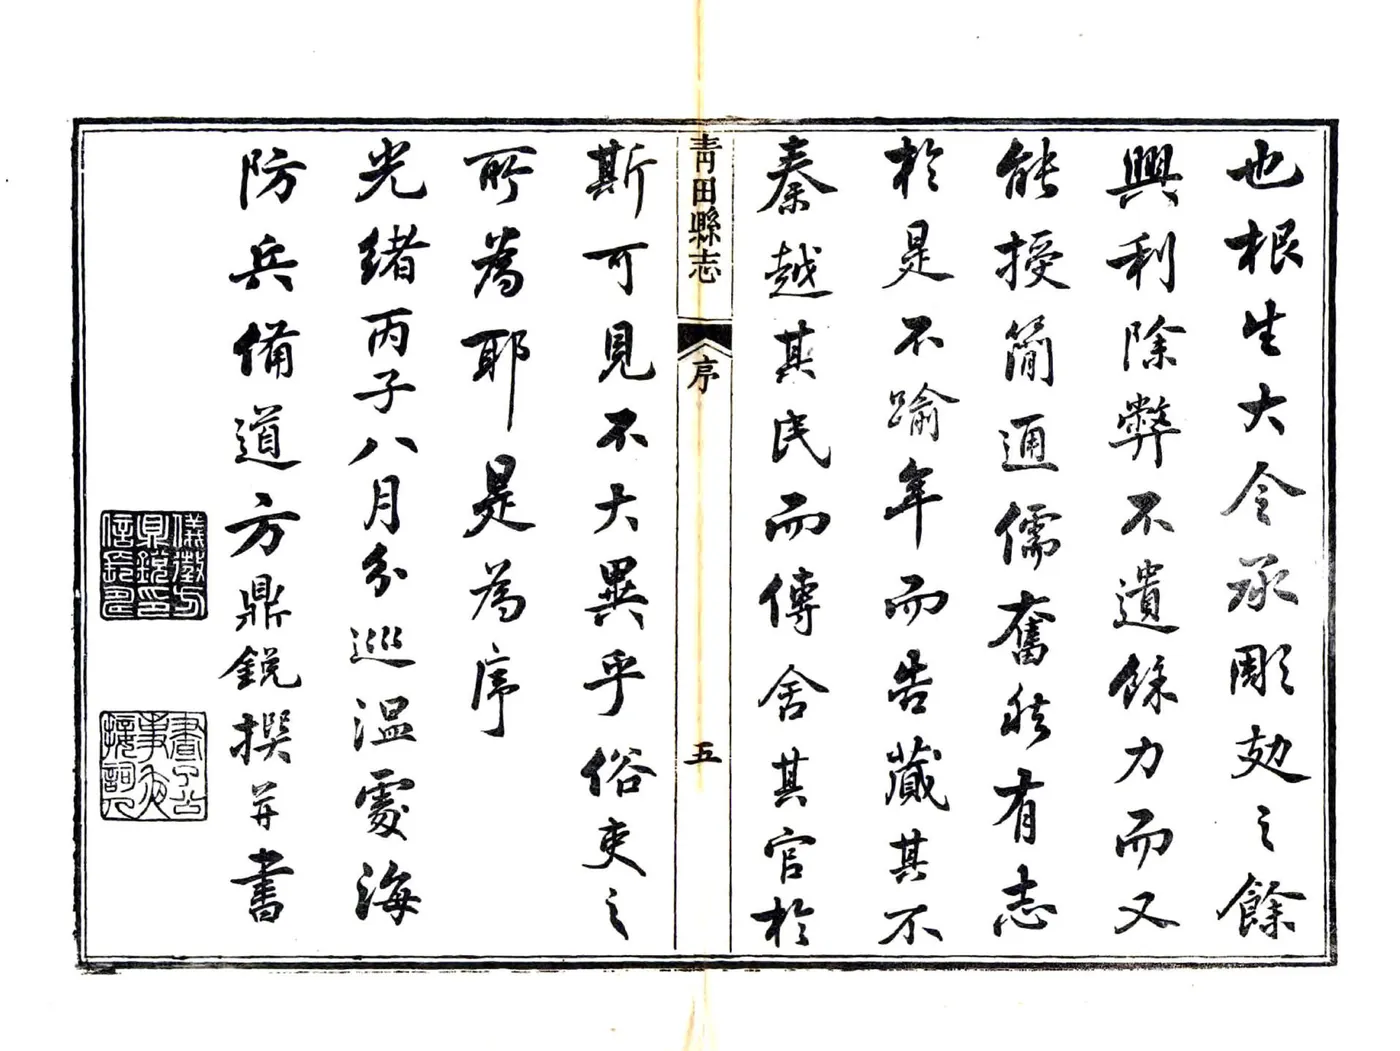 也根生大令承彫之餘
興利除弊不遺餘力而又
能授簡通儒奮然有志
於是不踰年而告蕆其不
秦越其民而傳舍其官於
青田縣志
序
五
斯可見不大異乎俗吏之
所為耶是為序
光緒丙子八月分巡溫處海
防兵備道方鼎銳撰并書
儀徵方
鼎銳印
信長